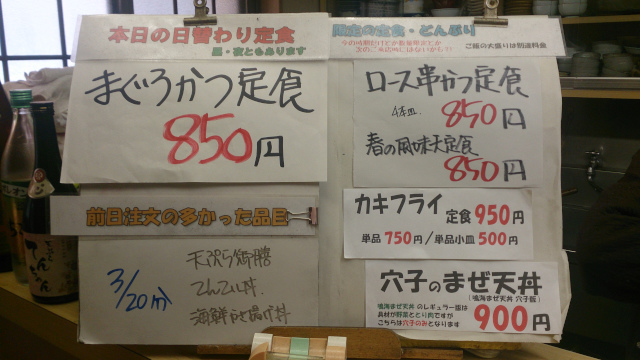 本日の日替わり定食
昼・夜ともあります
まぐろかつ定食
850円
前日注文の多かった品目
3/20
天ぷら
てんこい丼
海鮮かき揚げ丼
限定の定食・どんぶり
ご飯の大盛りは別途料金
ロース串かつ定食
850円
春の風味天定食
850円
カキフライ
定食 950円
単品 750円/単品小皿 500円
穴子のまぜ天丼
(鳴海まぜ天丼 穴子版)
鳴海まぜ天丼 のレギュラー版は
具材が野菜ととり肉ですが
こちらは穴子のみとなります
900円